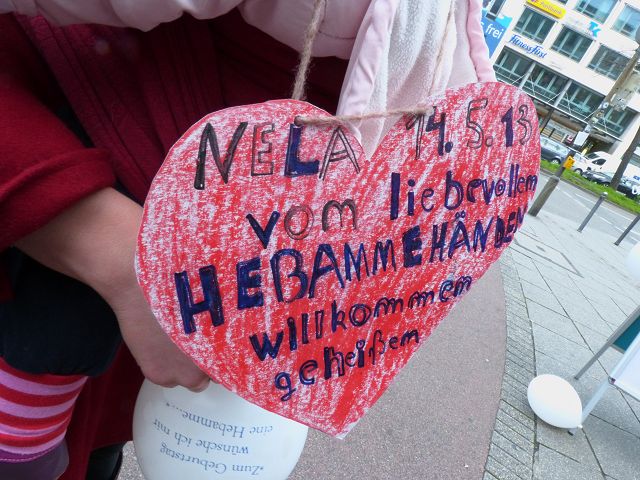 NELA 14.5.13
vom liebevollem
HEBAMMEHÄNDEN
willkommen
geheißen
"Zum Geburtstag
wünsche ich mir
eine Hebamme..."
frei
FitnessFirst